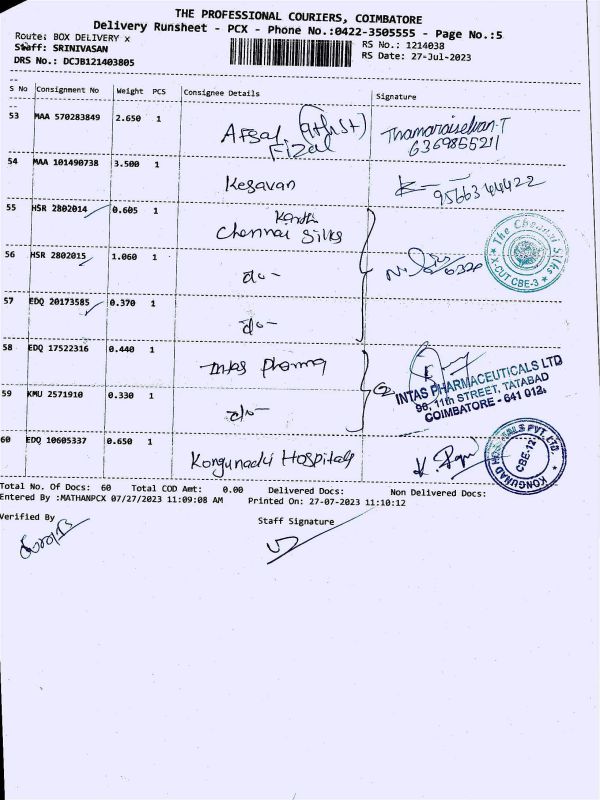 THE PROFESSIONAL COURIERS, COIMBATORE
Delivery Runsheet - PCX - Phone No.:0422-3505555 - Page No.:5
Route: BOX DELIVERY x
RS No.: 1214038
Staff: SRINIVASAN
RS Date: 27-Jul-2023
DRS No.: DCJB121403805
S No Consignment No Weight PCS Consignee Details Signature
53 MAA 570283849 2.650 1 Afsal (9th St) Thamaraiselvan-T
Fizal 6369855211
54 MAA 101490738 3.500 1 Kesavan 9566344422
55 HSR 2802014 0.605 1
Chennai Silks
The Chennai Silks
X-CUT CBE-3
56 HSR 2802015 1.060 1 do-
57 EDQ 20173585 0.370 1 do-
58 EDQ 17522316 0.440 1 Intas Pharma
INTAS PHARMACEUTICALS LTD
96, 11th STREET, TATABAD
COIMBATORE - 641 012.
59 KMU 2571910 0.330 1 do-
60 EDQ 10605337 0.650 1 Kongunadu Hospitals
KONGUNAD HOSPITALS PVT. LTD.
CBE-12
Total No. Of Docs: 60 Total COD Amt: 0.00 Delivered Docs: Non Delivered Docs:
Entered By :MATHANPCX 07/27/2023 11:09:08 AM Printed On: 27-07-2023 11:10:12
Verified By
Staff Signature